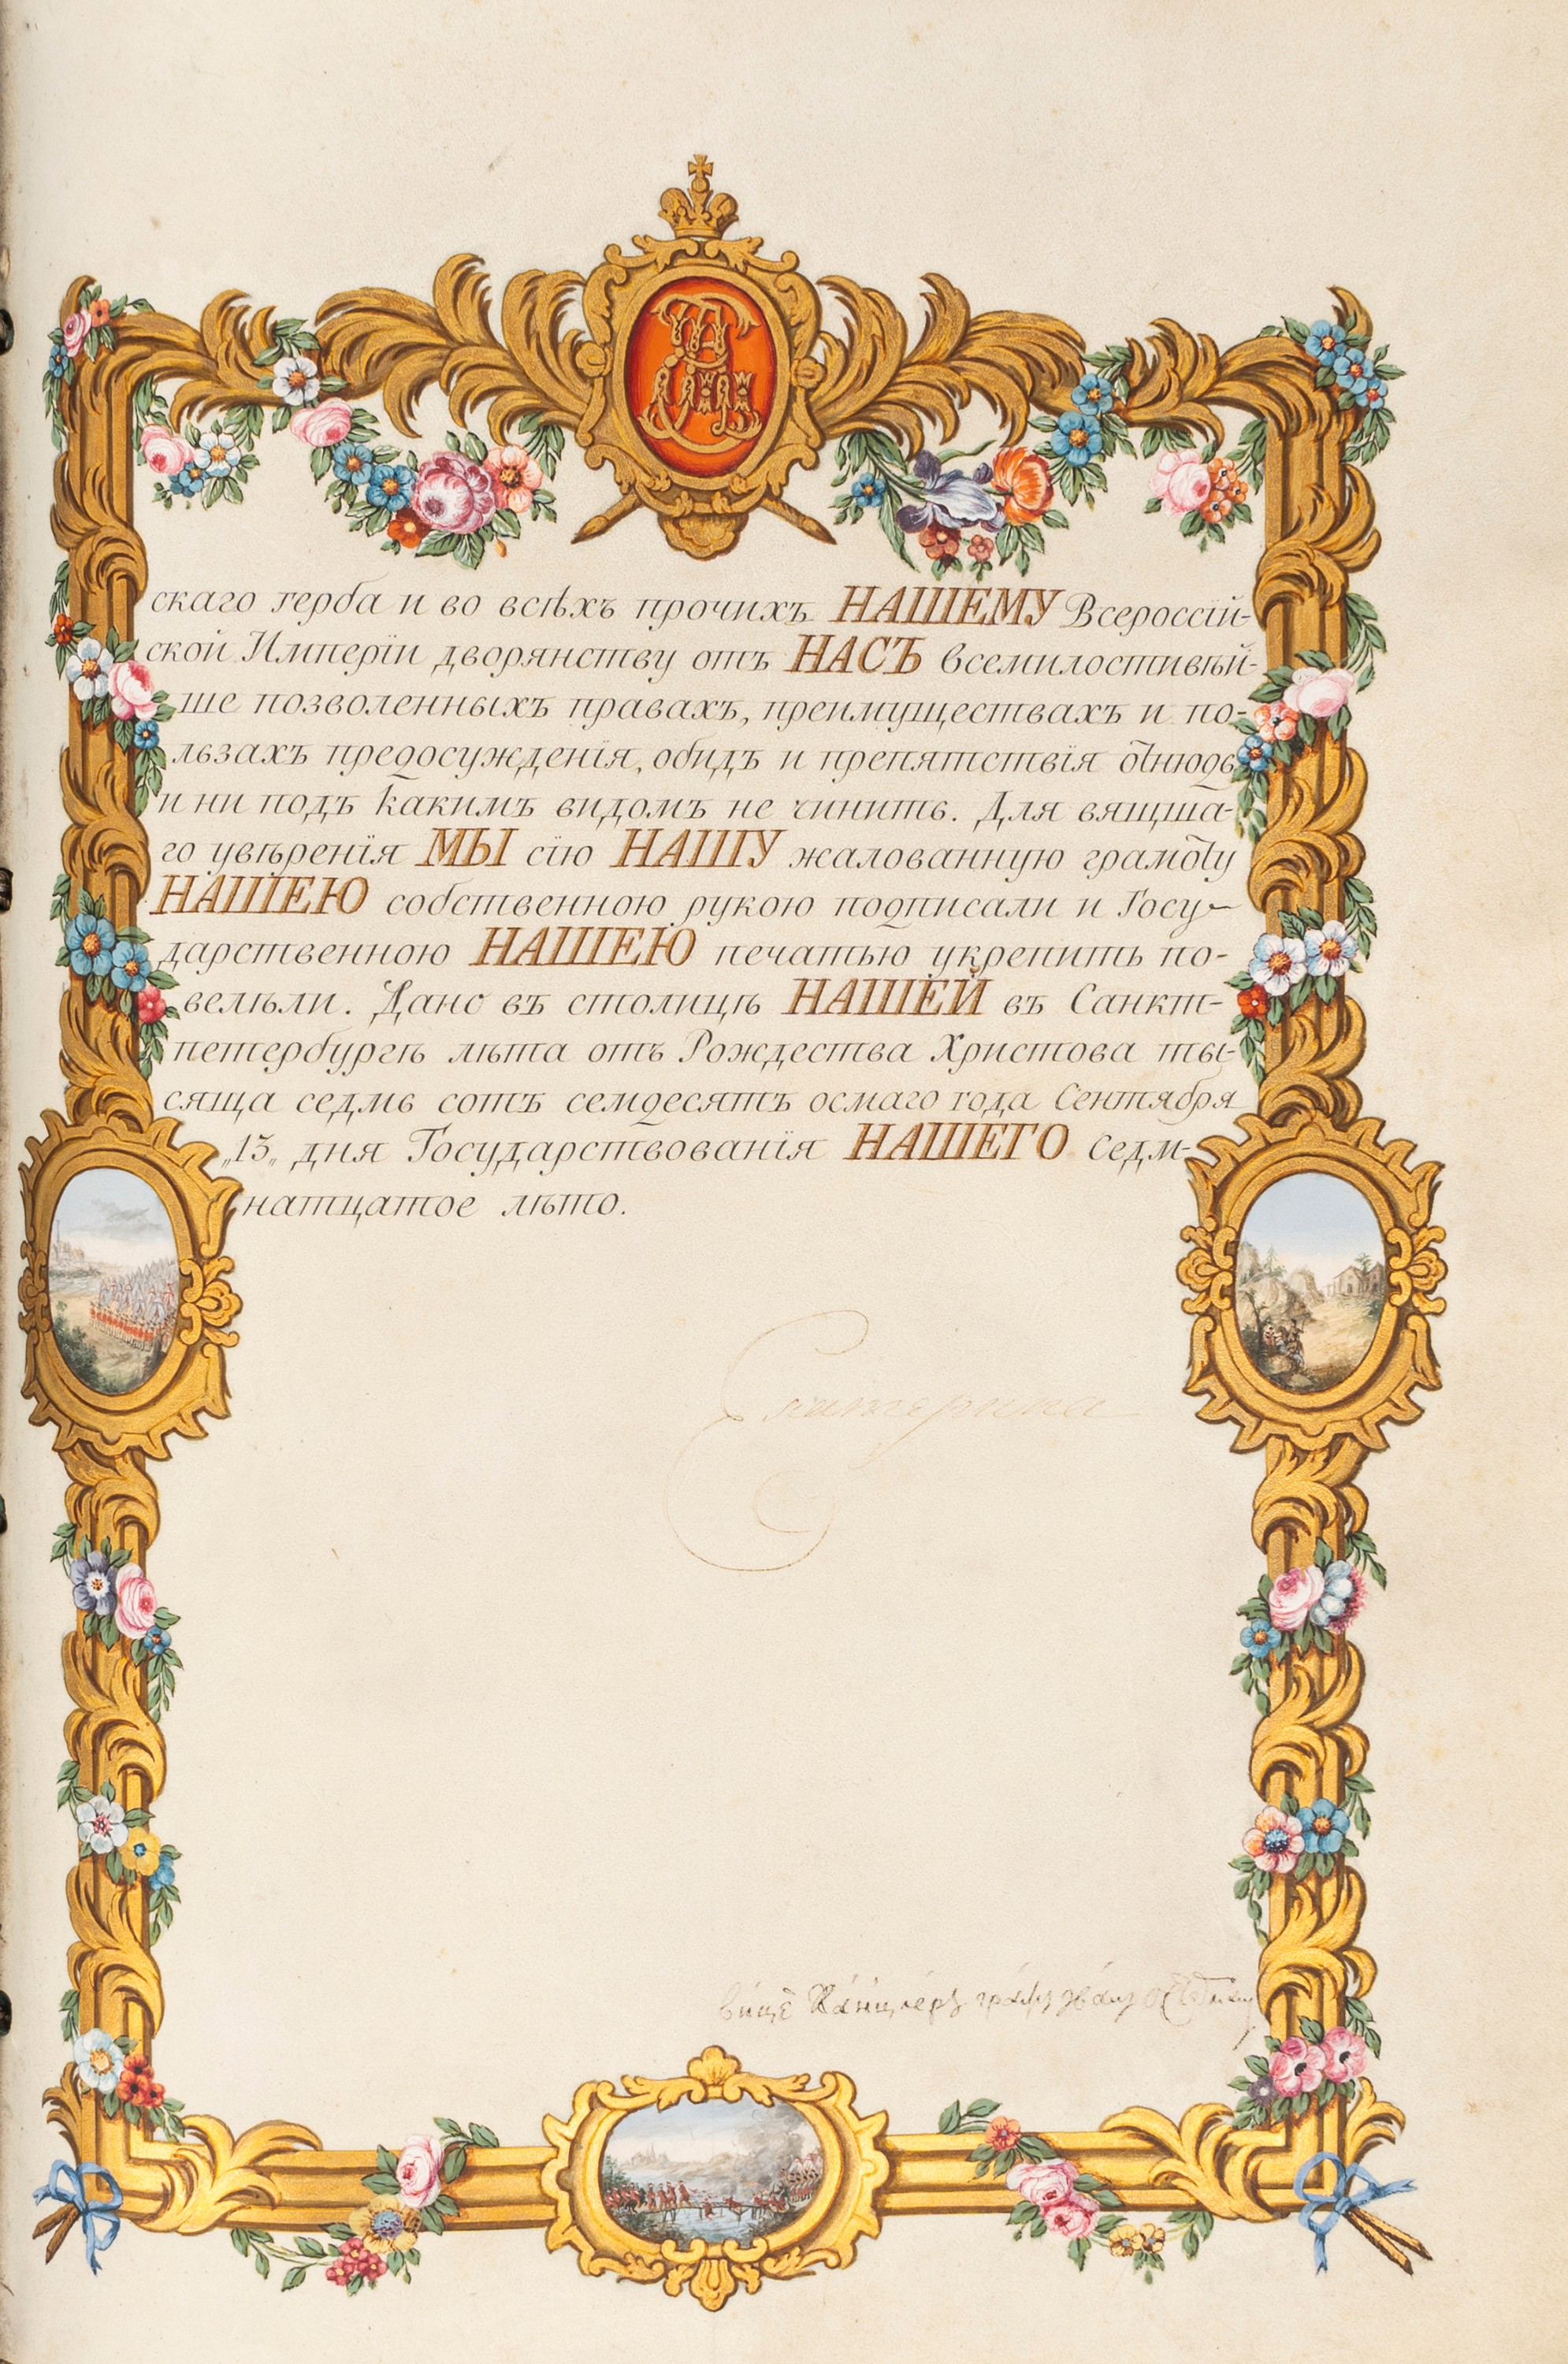 скаго герба и во всѣхъ прочихъ НАШЕМУ Всероссій-
ской Имперіи дворянству отъ НАСЪ всемилостивѣй-
ше позволенныхъ правахъ, преимуществахъ и по-
льзахъ предосужденія, обидъ и препятствія отнюдь
и ни подъ какимъ видомъ не чинить. Для вящша-
го увѣренія МЫ сію НАШУ жалованную грамоту
НАШЕЮ собственною рукою подписали и Госу-
дарственною НАШЕЮ печатью укрепить по-
велѣли. Дано въ столицѣ НАШЕЙ въ Санкт-
петербургѣ лѣта отъ Рождества Христова ты-
сяща седмь сотъ семдесятъ осмаго года Сентября
„13„ дня Государствованія НАШЕГО седм-
натцатое лѣто.
Екатерина
вице канцлеръ графъ Иванъ Остерманъ